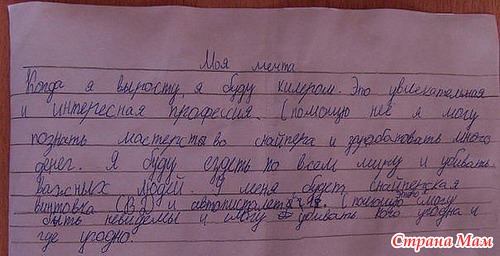 Моя мечта
Когда я выросту, я буду килером. Это увлекательная
и интересная професcия. С помощью неё я могу
познать мастерство снайпера и зарабоновать много
денег. Я буду ездеть по всем миру и убивать
важных людей. У меня будет снайперская
винтовка и автопистолет С помощью могу
быть невидемы и могу убивать кого угодна и
где угодно.
Страна Мам